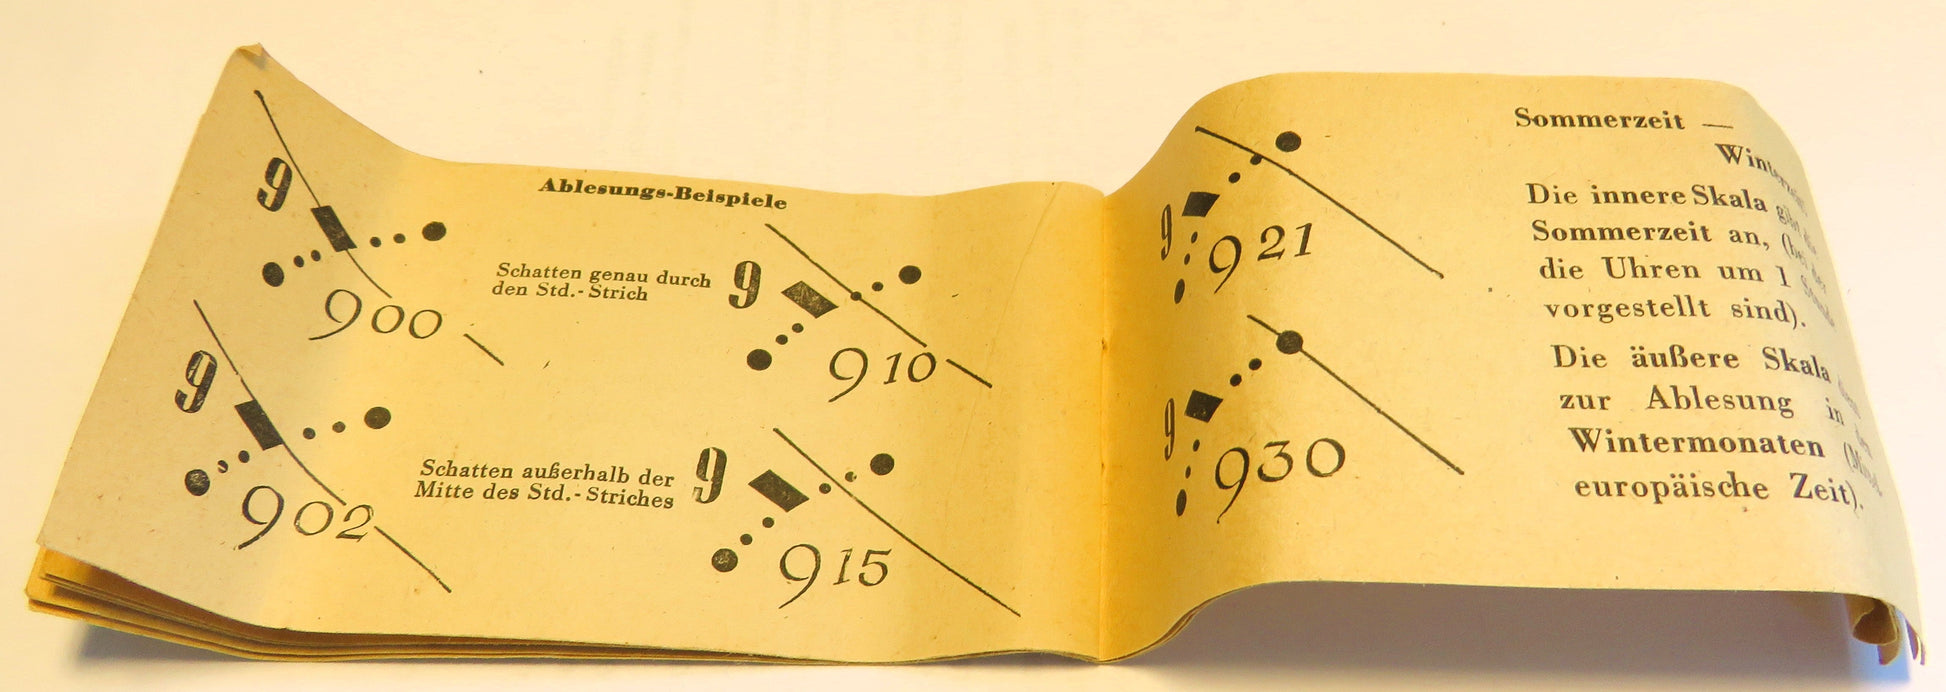 Ablesungs-Beispiele
9
900
Schatten genau durch
den Std.-Strich
9
910
9
902
Schatten außerhalb der
Mitte des Std.-Striches
9
915
9
921
9
930
Sommerzeit —
Die innere Skala
Sommerzeit an,
die Uhren um 1
vorgestellt sind).
Die äußere Skala
zur Ablesung in
Wintermonaten
europäische Zeit).